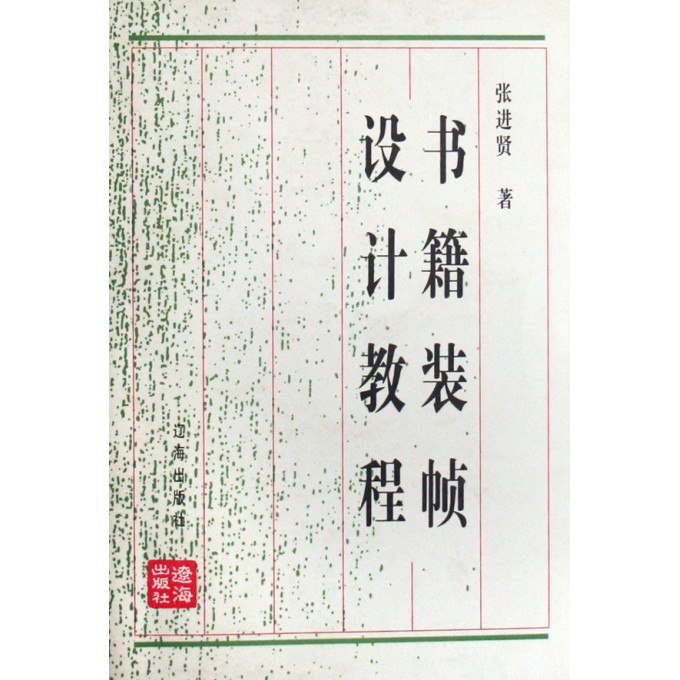 张进贤 著
书籍装帧
设计教程
辽海出版社
遼海
出版社